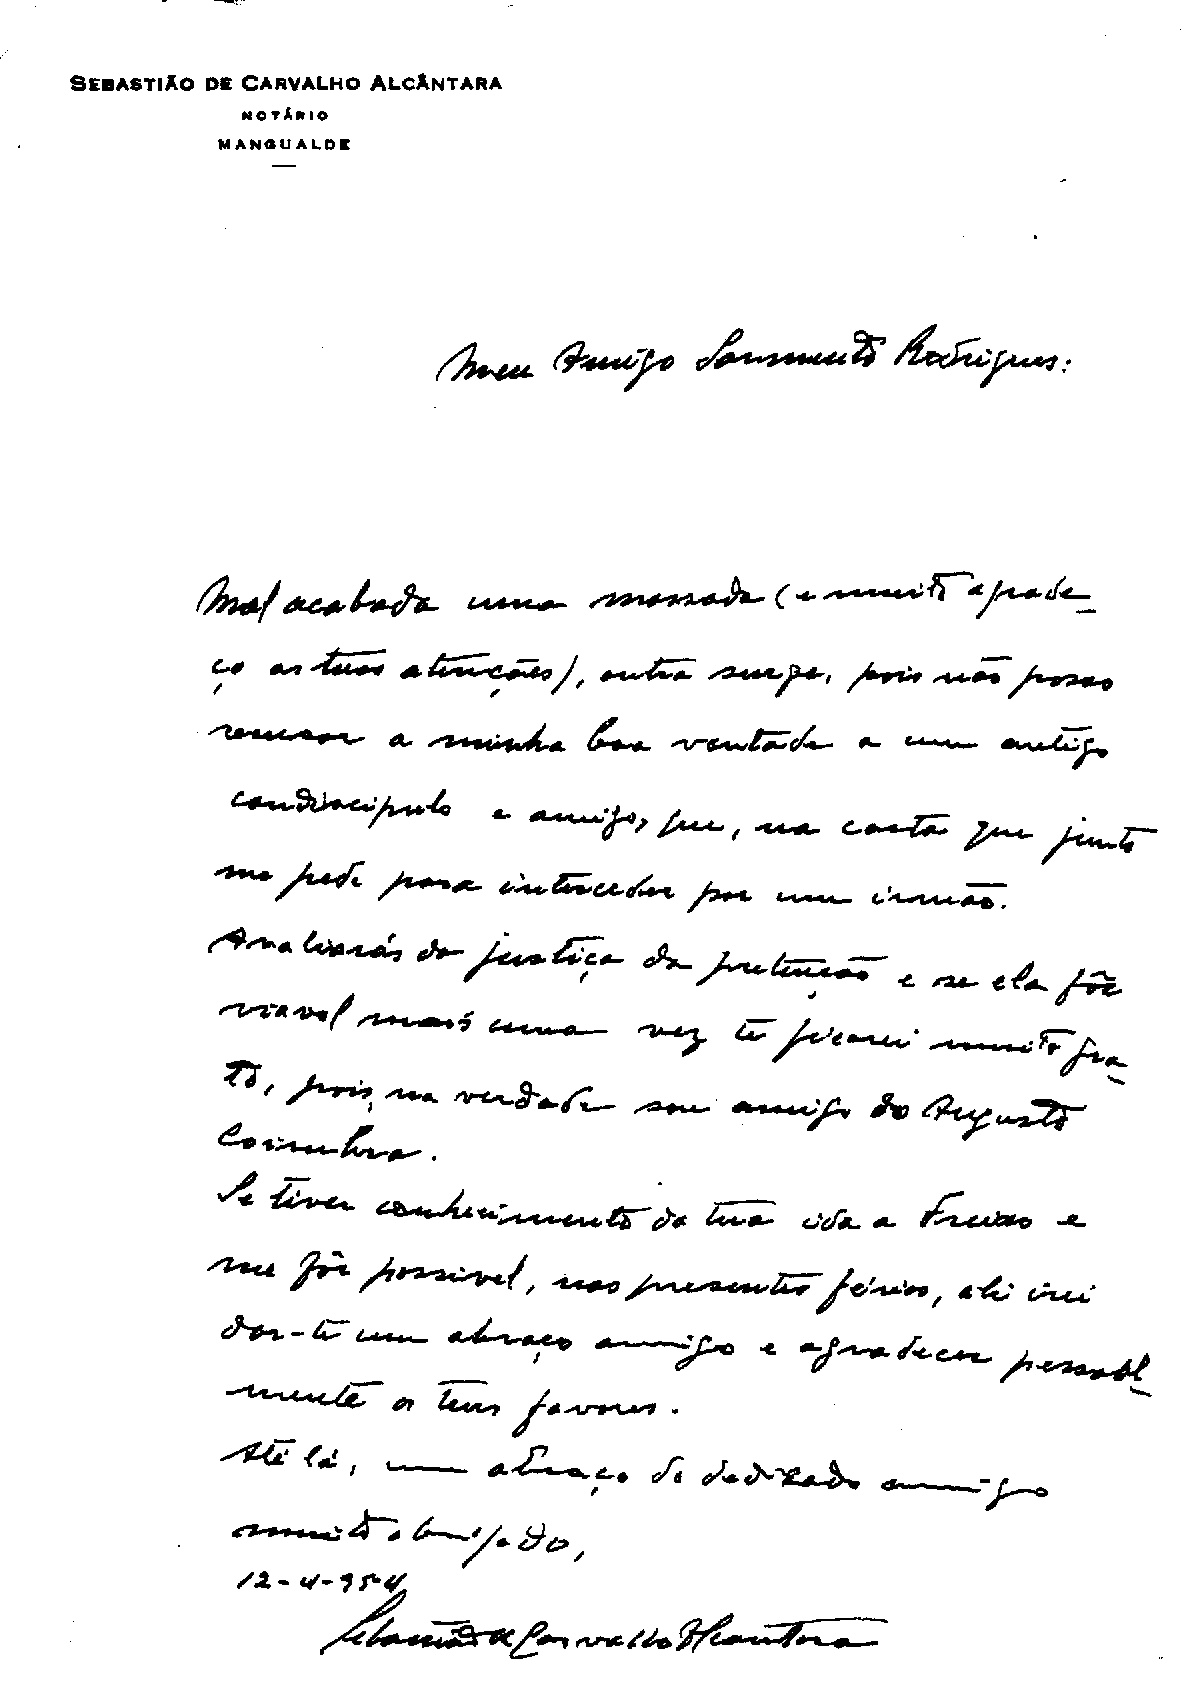 SEBASTIÃO DE CARVALHO ALCÂNTARA
NOTÁRIO
MANGUALDE
Meu Amigo Sarmento Rodrigues:
Mal acabada uma massada (e muito agrade-
ço as tuas atenções), outra surge, pois não posso
recusar a minha boa vontade a um antigo
condiscipulo e amigo, que, na carta que junto
me pede para interceder por um irmão.
Avaliarás da justiça da pretenção e se ela fôr
viavel mais uma vez te ficarei muito gra-
to, pois, na verdade sou amigo do Augusto
Coimbra.
Se tiver conhecimento da tua ida a Freixo e
me fôr possivel, nas presentes férias, ali irei
dar-te um abraço amigo e agradecer pessoal-
mente os teus favores.
Até lá, um abraço de dedicado amigo
muito obrigado,
12-4-954
Sebastião de Carvalho Alcantara